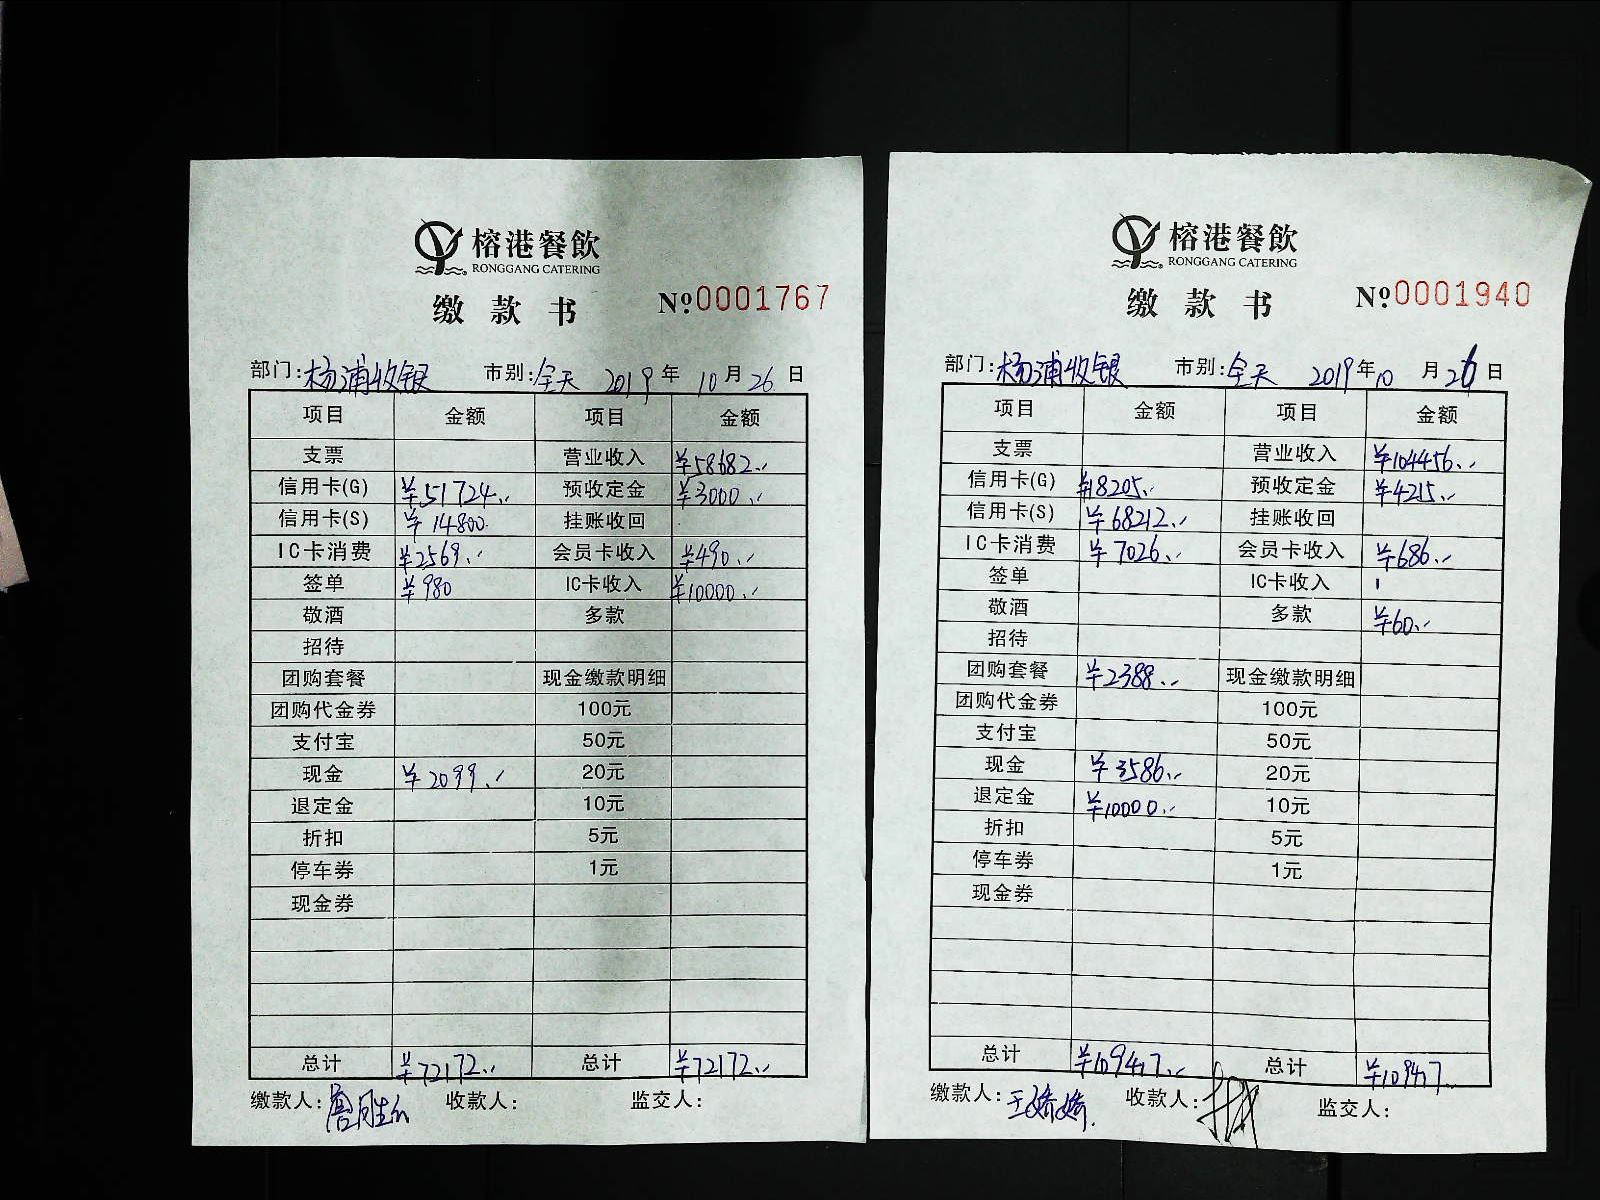 榕港餐飲
RONGGANG CATERING
缴款书 №0001767
部门:杨浦收银 市别:全天 2019年10月26日
项目 金额 项目 金额
支票 营业收入 ¥58682.-
信用卡(G) ¥51724.- 预收定金 ¥3000.-
信用卡(S) ¥14800. 挂账收回
IC卡消费 ¥2569.- 会员卡收入 ¥490.-
签单 ¥980 IC卡收入 ¥10000.-
敬酒 多款
招待
团购套餐 现金缴款明细
团购代金券 100元
支付宝 50元
现金 ¥2099.- 20元
退定金 10元
折扣 5元
停车券 1元
现金券
总计 ¥72172.- 总计 ¥72172.-
缴款人: 收款人: 监交人:
榕港餐飲
RONGGANG CATERING
缴款书 №0001940
部门:杨浦收银 市别:全天 2019年10月26日
项目 金额 项目 金额
支票 营业收入 ¥104456.-
信用卡(G) ¥18205.- 预收定金 ¥4215.-
信用卡(S) ¥68212.- 挂账收回
IC卡消费 ¥7026.- 会员卡收入 ¥686.-
签单 IC卡收入
敬酒 多款 ¥60.-
招待
团购套餐 ¥2388.- 现金缴款明细
团购代金券 100元
支付宝 50元
现金 ¥3586.- 20元
退定金 ¥10000.- 10元
折扣 5元
停车券 1元
现金券
总计 ¥109417.- 总计 ¥109417.-
缴款人: 收款人: 监交人: